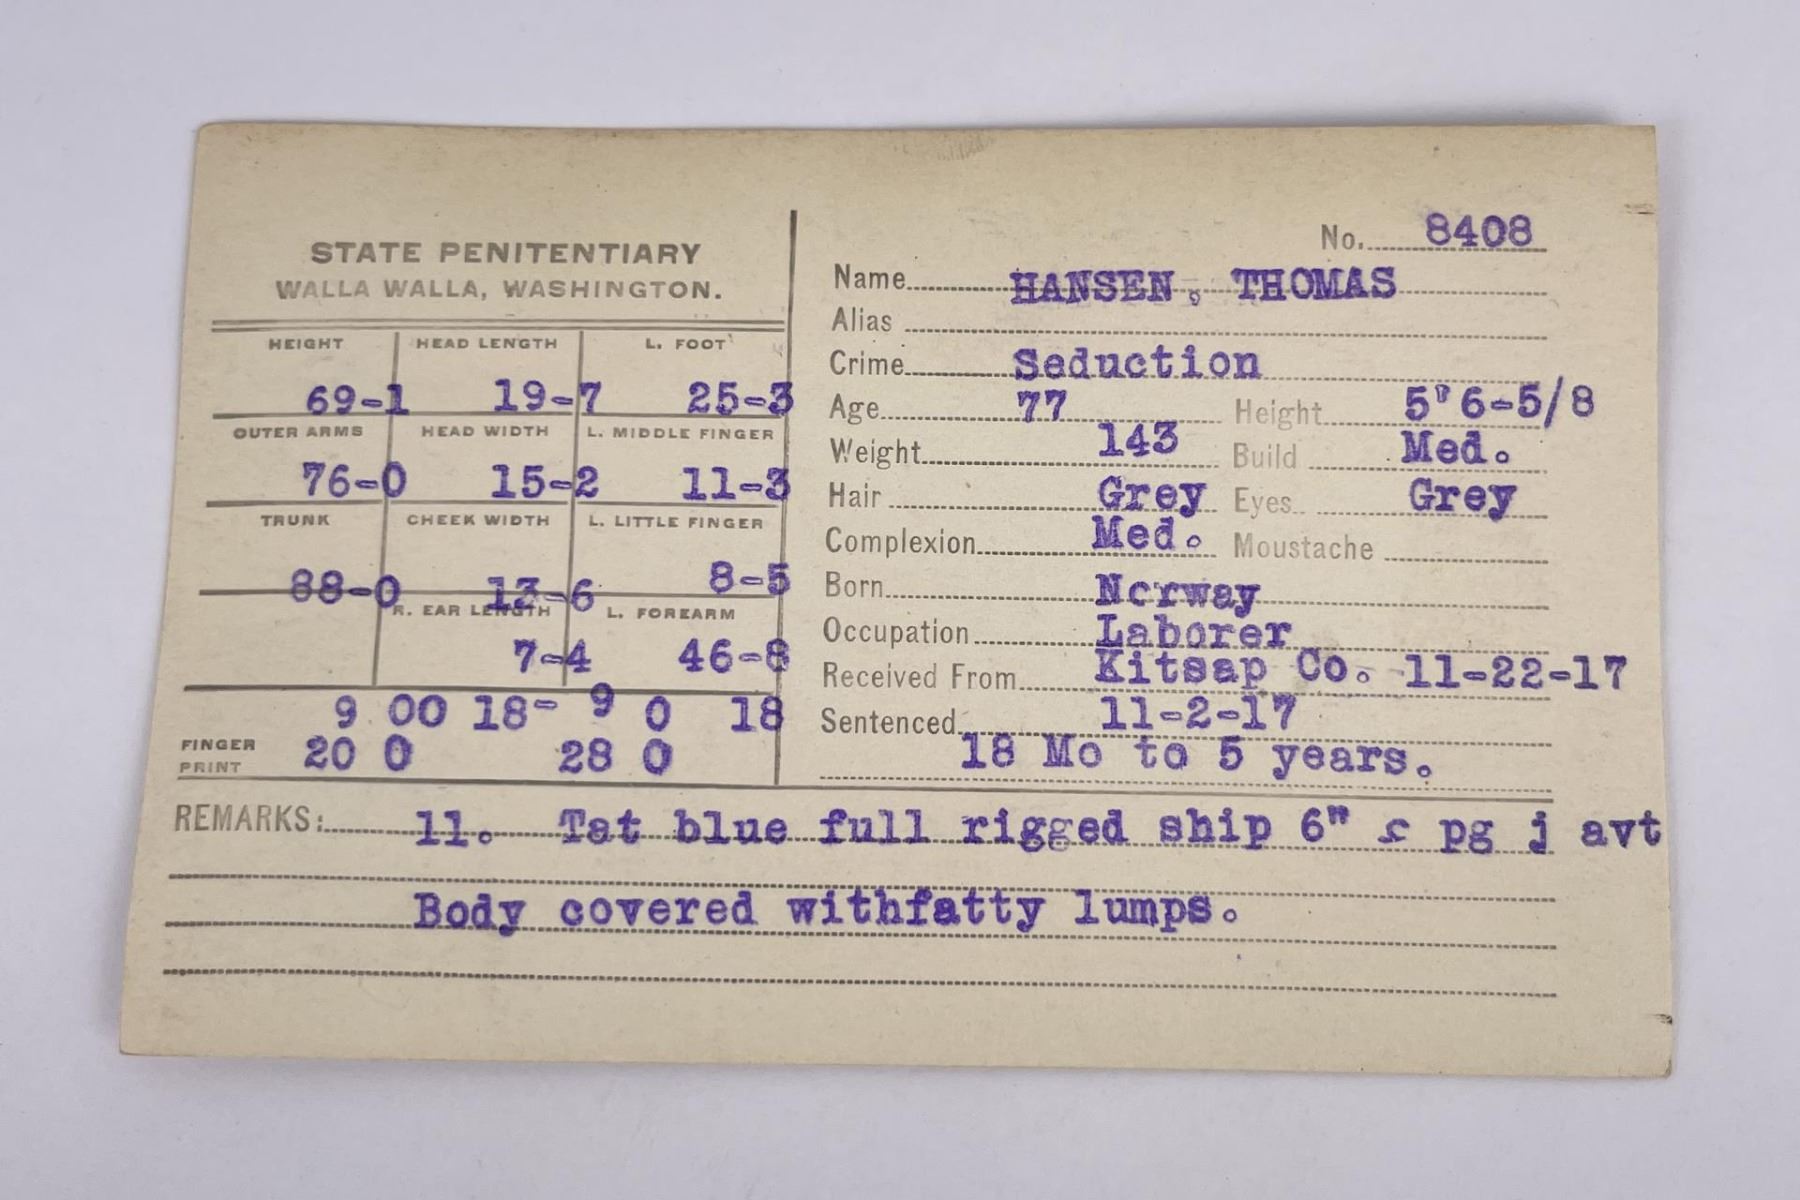 STATE PENITENTIARY
WALLA WALLA, WASHINGTON.
HEIGHT HEAD LENGTH L. FOOT
69-1 19-7 25-3
OUTER ARMS HEAD WIDTH L. MIDDLE FINGER
76-0 15-2 11-3
TRUNK CHEEK WIDTH L. LITTLE FINGER
88-0 13-6 8-5
R. EAR LENGTH L. FOREARM
7-4 46-8
9 00 18- 9 0 18
FINGER PRINT 20 0 28 0
No. 8408
Name HANSEN, THOMAS
Alias
Crime Seduction
Age 77 Height 5'6-5/8
Weight 143 Build Med.
Hair Grey Eyes Grey
Complexion Med. Moustache
Born Norway
Occupation Laborer
Received From Kitsap Co. 11-22-17
Sentenced 11-2-17
18 Mo to 5 years.
REMARKS: 11. Tat blue full rigged ship 6" c pg j avt
Body covered withfatty lumps.